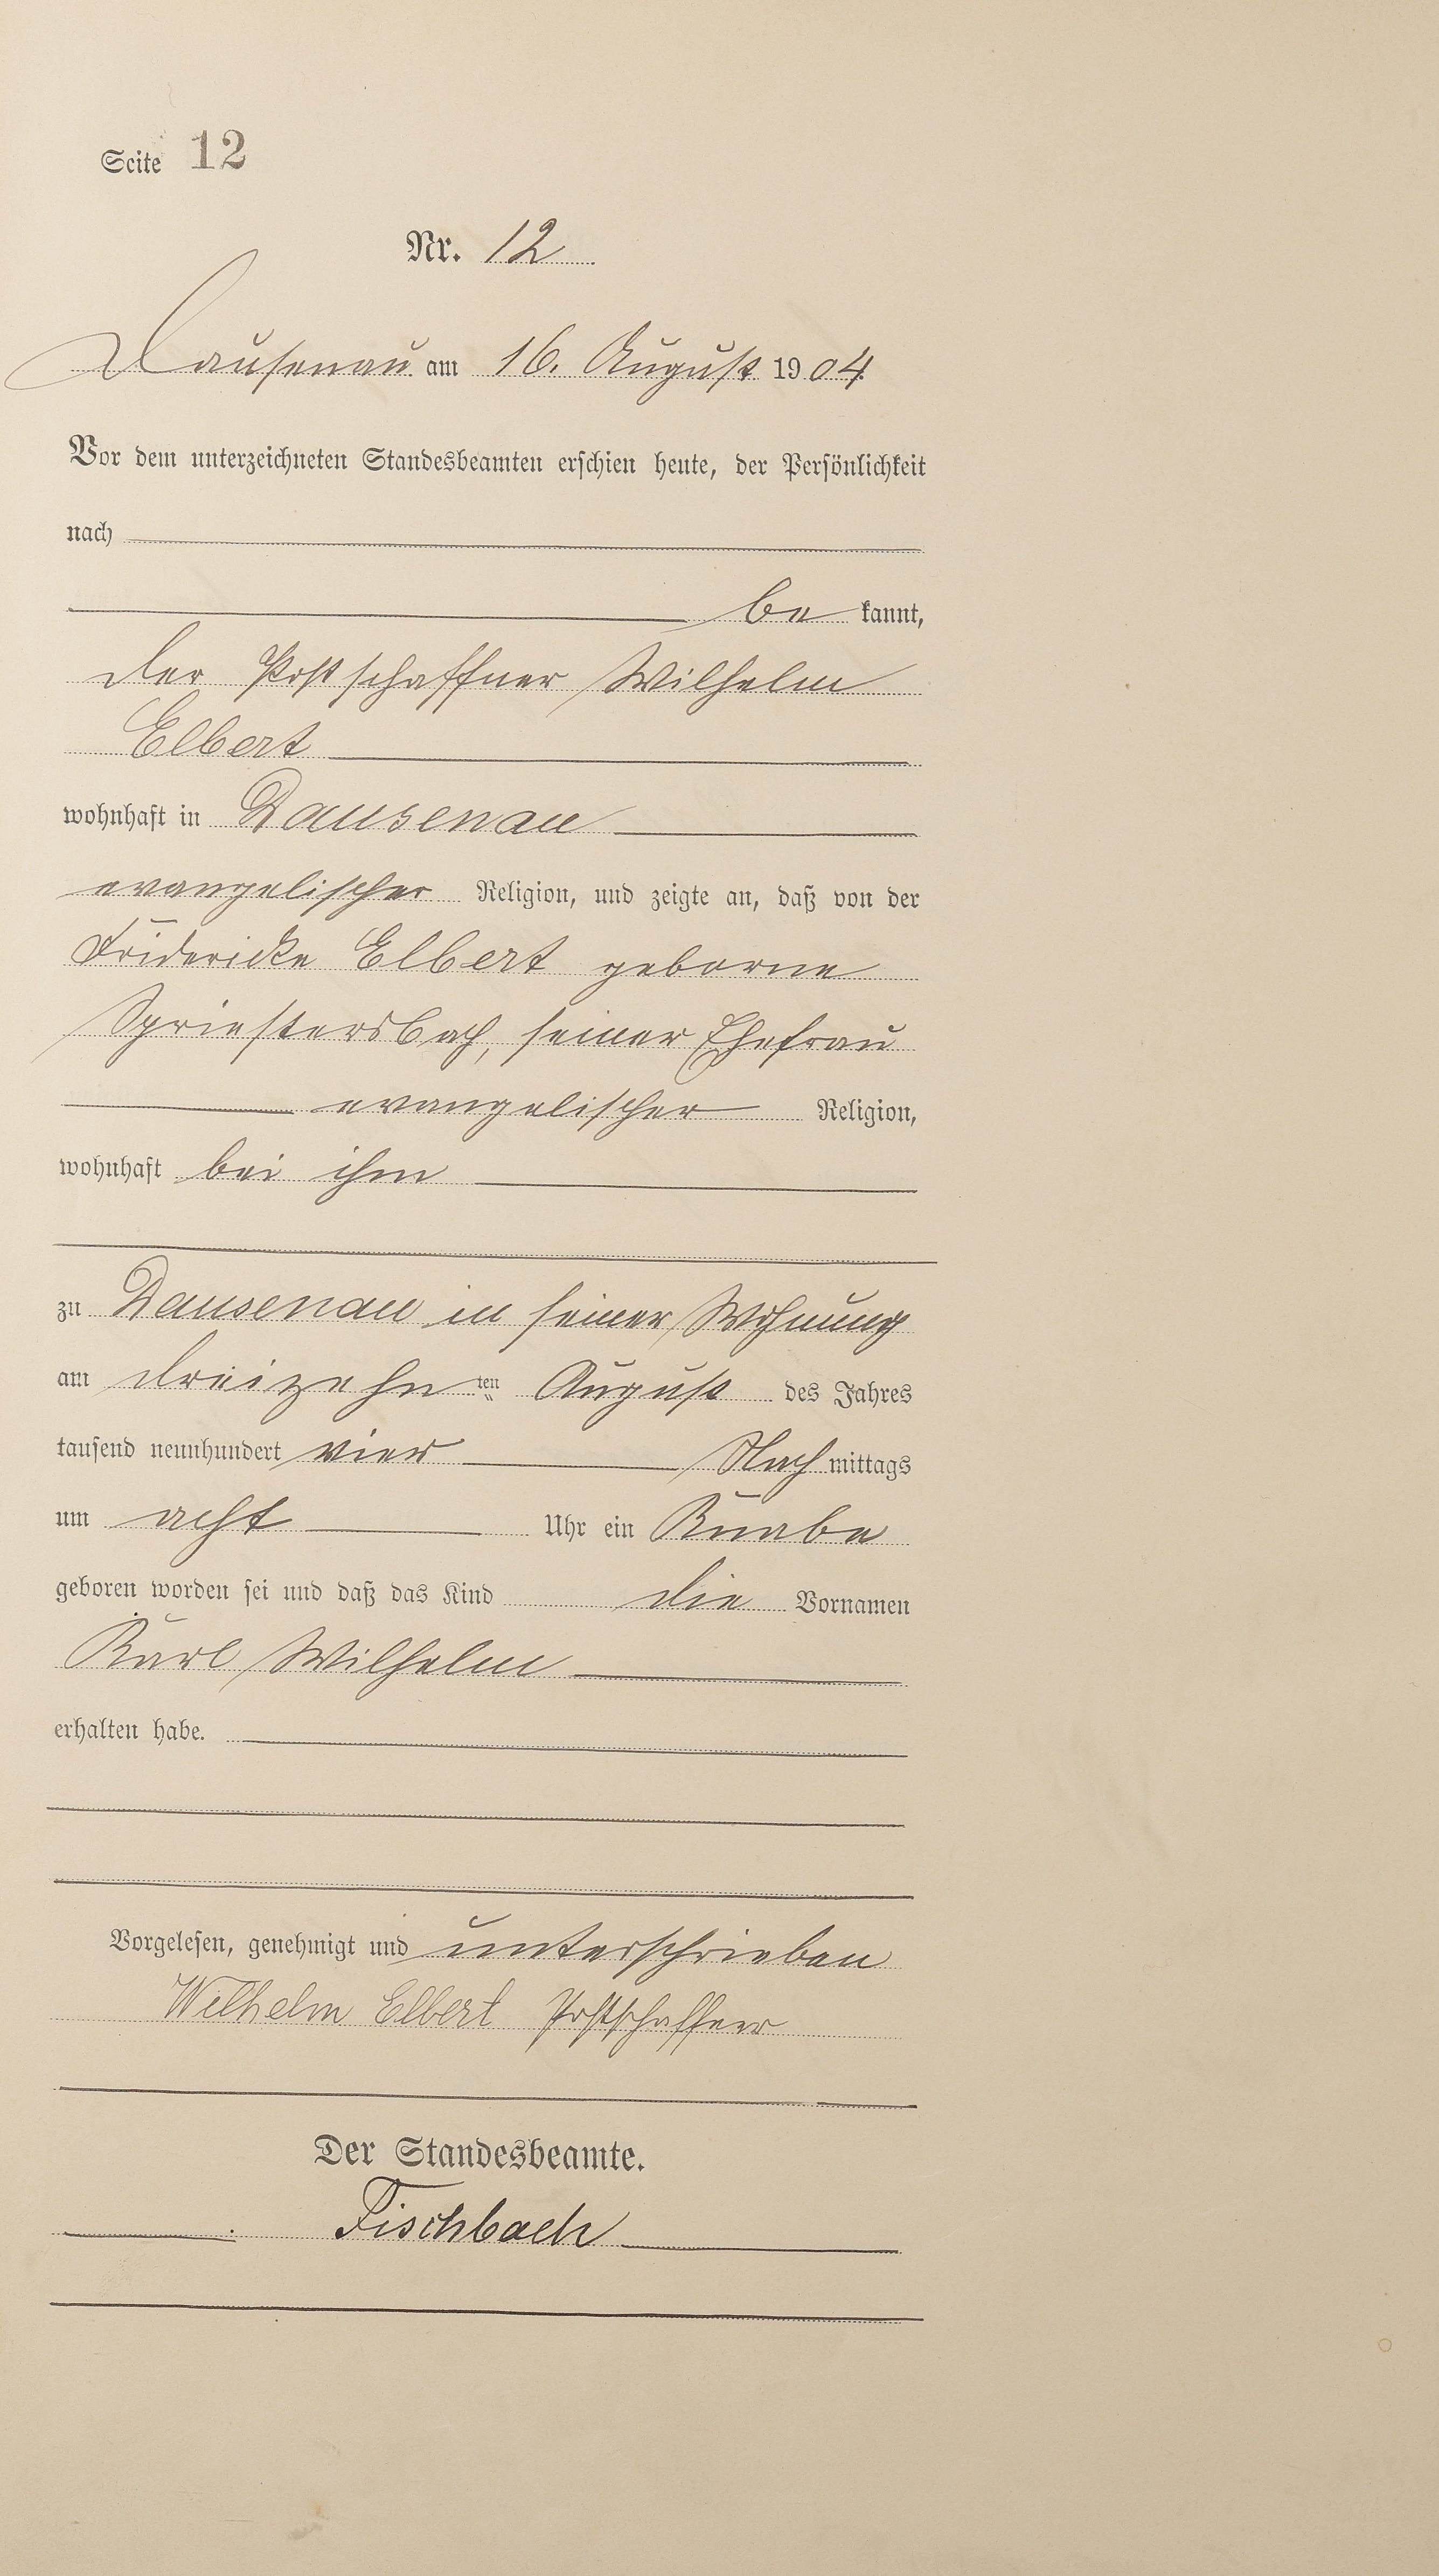 Seite 12
Nr. 12
Dausenau am 16. August 1904
Vor dem unterzeichneten Standesbeamten erschien heute, der Persönlichkeit
nach
be kannt,
der Postschaffner Wilhelm
Elbert
wohnhaft in Dausenau
evangelischer Religion, und zeigte an, daß von der
Fridericke Elbert geborne
Spriestersbach, seiner Ehefrau
evangelischer Religion,
wohnhaft bei ihm
zu Dausenau in seiner Wohnung
am dreizehn ten August des Jahres
tausend neunhundert vier Nachmittags
um acht Uhr ein Knabe
geboren worden sei und daß das Kind die Vornamen
Karl Wilhelm
erhalten habe.
Vorgelesen, genehmigt und unterschrieben
Wilhelm Elbert Postschaffner
Der Standesbeamte.
Fischbach